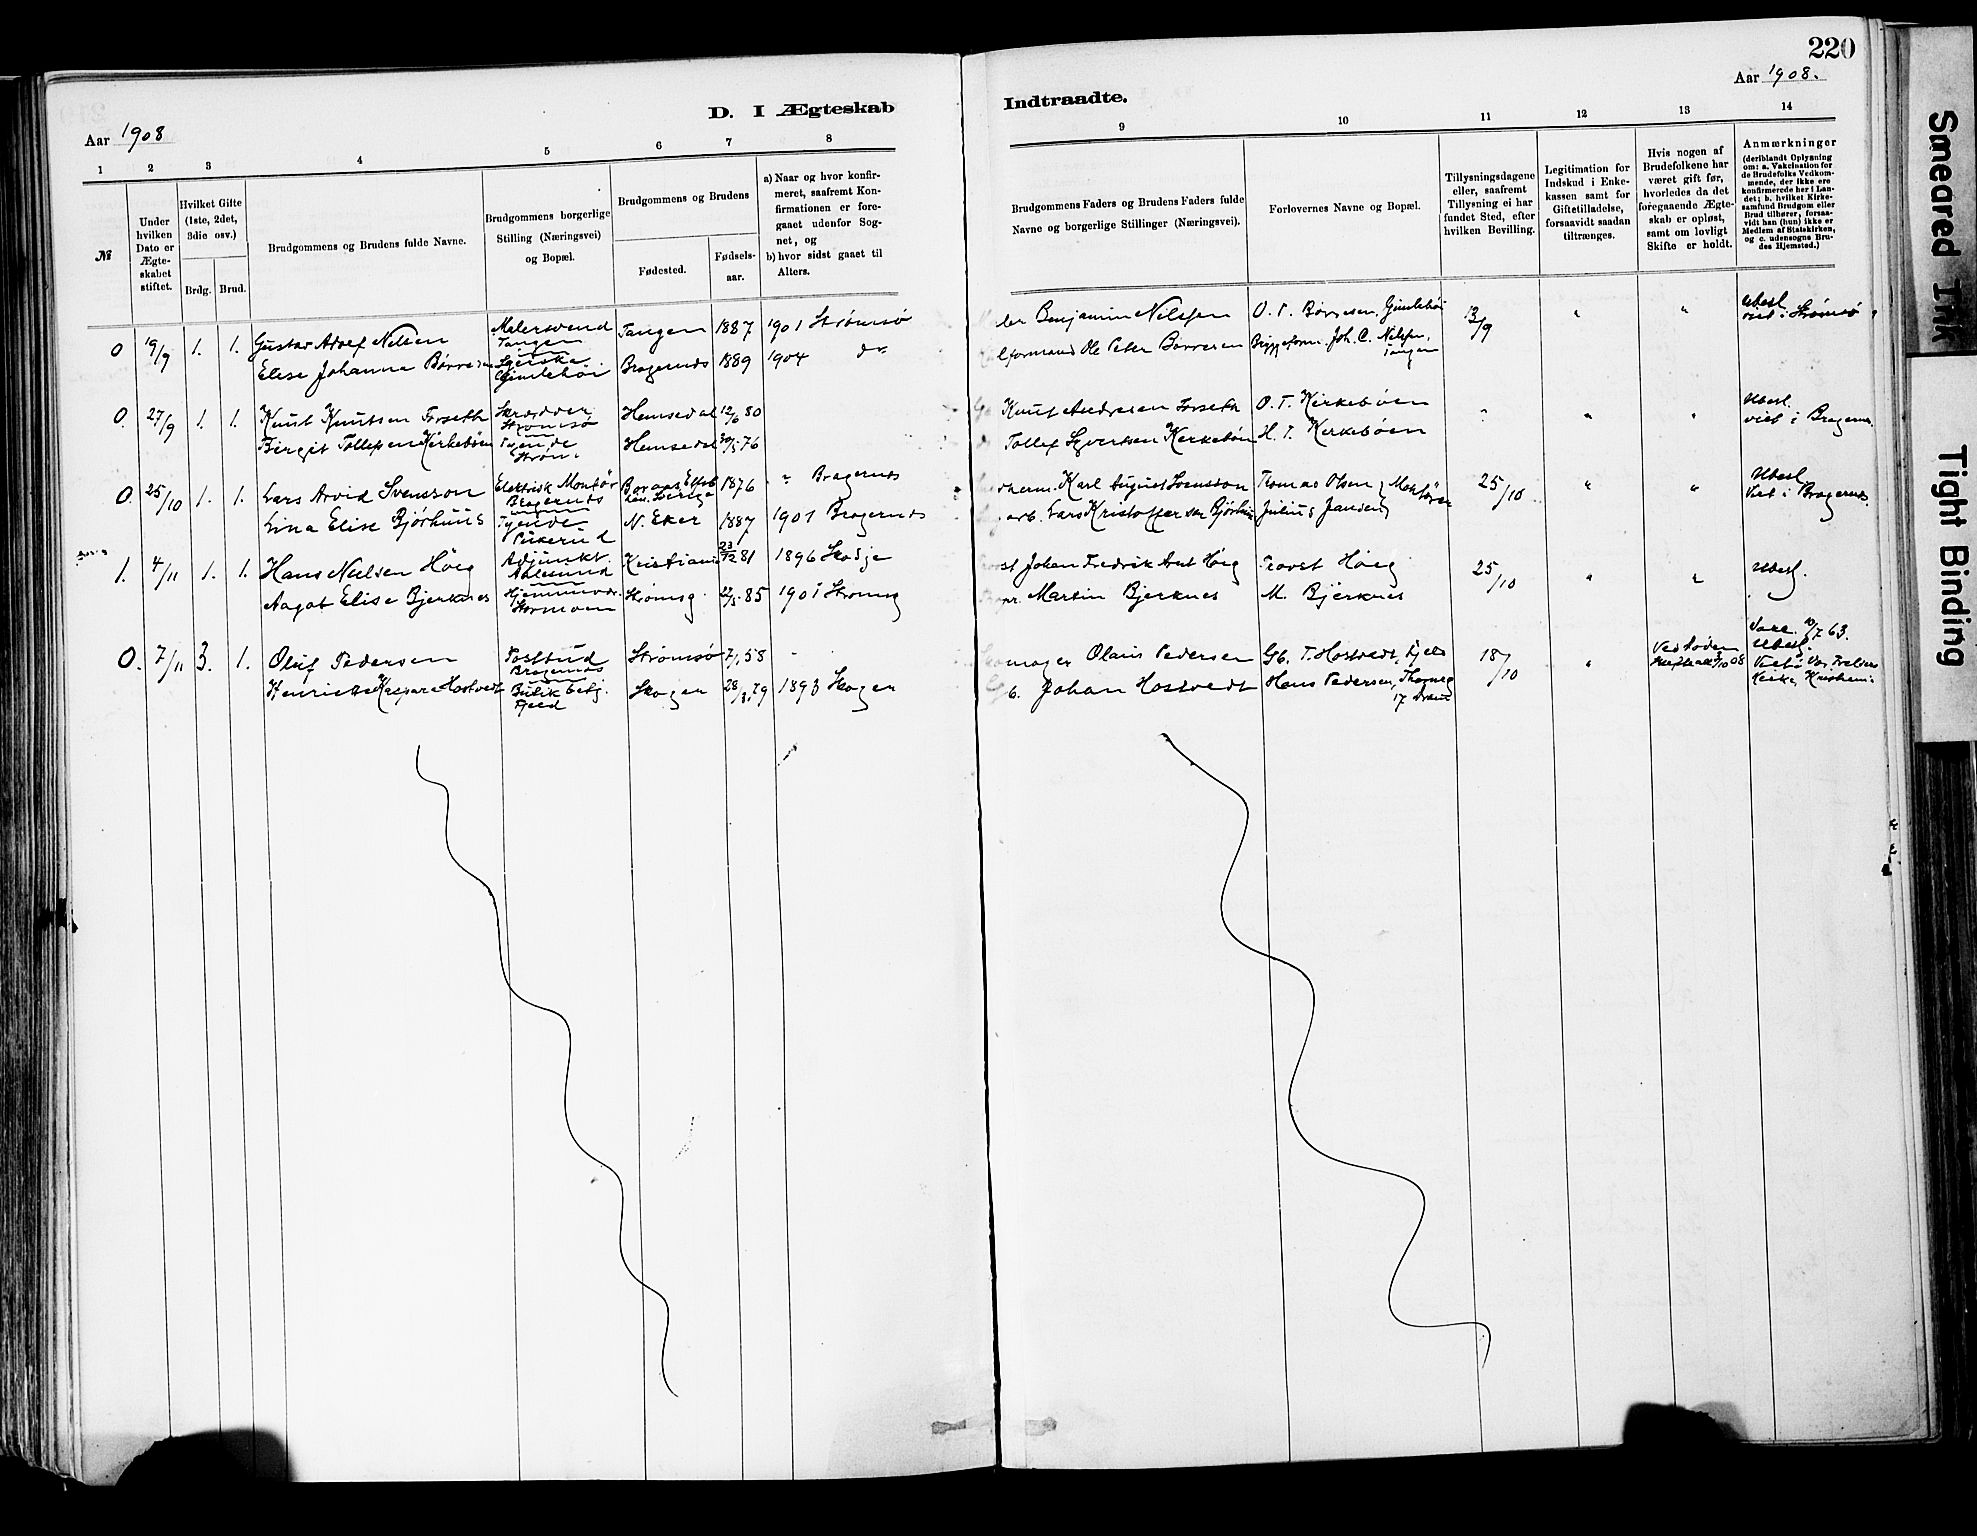 220
Aar 1908
D. I Ægteskab
Indtraadte.
Aar 1908.
1 2 3 4 5 6 7 8
9 10 11 12 13 14
№
Under hvilken Dato er Ægteskabet stiftet.
Hvilket Gifte (1ste, 2det, 3die osv.)
Brdg. Brud.
Brudgommens og Brudens fulde Navne.
Brudgommens borgerlige Stilling (Næringsvei) og Bopæl.
Brudgommens og Brudens
Fødested.
Fødselsaar.
a) Naar og hvor konfirmeret, saafremt Konfirmationen er foregaaet udenfor Sognet, og
b) hvor sidst gaaet til Alters.
Brudgommens Faders og Brudens Faders fulde Navne og borgerlige Stillinger (Næringsvei).
Forlovernes Navne og Bopæl.
Tillysningsdagene eller, saafremt Tillysning ei har fundet Sted, efter hvilken Bevilling.
Legitimation for Indskud i Enkekassen samt for Giftetilladelse, forsaavidt saadan tiltrænges.
Hvis nogen af Brudefolkene har været gift før, hvorledes da det foregaaende Ægteskab er opløst, samt om lovligt Skifte er holdt.
Anmærkninger
(deriblandt Oplysning om: a. Vakcination for de Brudefolks Vedkommende, der ikke ere konfirmerede her i Landet; b. hvilket Kirkesamfund Brudgom eller Brud tilhører, forsaavidt han (hun) ikke er Medlem af Statskirken, og c. udensogns Brudes Hjemsted.)
0 19/9 1. 1. Gustav Adolf Nelsen Malersvend Tangen Tangen 1887 1901 Strømsø
Benjamin Nilssen O. P. Børresen, Gimlehöi 13/9 " " Ubesl. viet i Strømsø
Elise Johanna Børresen Gimlehöi Bragernes 1889 1904 do
formand Ole Peter Børresen Joh. C. Nilssen, Tangen
0. 27/9 1. 1. Knut Knutsen Forseth Skrædder Strømsø Hemsedal 12/6 80
Knut Andresen Forseth O. T. Kirkebøen " " " Ubesl. viet i Bragernes
Birgit Tollefsen Kirkebøen Tjende Strøm. Hemsedal 76
Tollef Syversen Kirkebøen H. T. Kirkebøen
0. 25/10 1. 1. Lars Arvid Svensson Elektrisk Montör Bragernes 1876 " Bragernes
Karl August Svensson Tomas Olsen Montører 25/10 " " Ubesl. Viet i Bragernes
Lina Elise Bjørhuus Tjende N. Eker 1887 1901 Bragernes
arb. Lars Kristoffersen Bjørhuus Julius Jansen
1. 4/11 1. 1. Hans Nielsen Höeg Adjunkt Aalesund Kristiania 23/12 81 1896 Skodje
Johan Fredrik Höeg Provst Höeg 25/10 " " Ubesl.
Aagot Elise Bjerknes Stormoen Strømsg. 22/5 85 1901 Strømsg
Martin Bjerknes M. Bjerknes
0. 7/11 3. 1. Oluf Pedersen Postbud Bragernes Strømsø 7/1 58 "
Olaus Pedersen Gb. T. Hostvedt, Fjeld 18/10 " Ved døden 08 Vacc. 10/7 63. Ubesl. Viet i Vor Frelsers Kirke, Kristiania
Henriette Kaspara Hostvedt Butik betj. Fjeld Skoger 28/3 79 1893 Skoger
Gb. Johan Hostvedt Hans Pedersen, Thorneg 17 Dram
Smeared Ink
Tight Binding